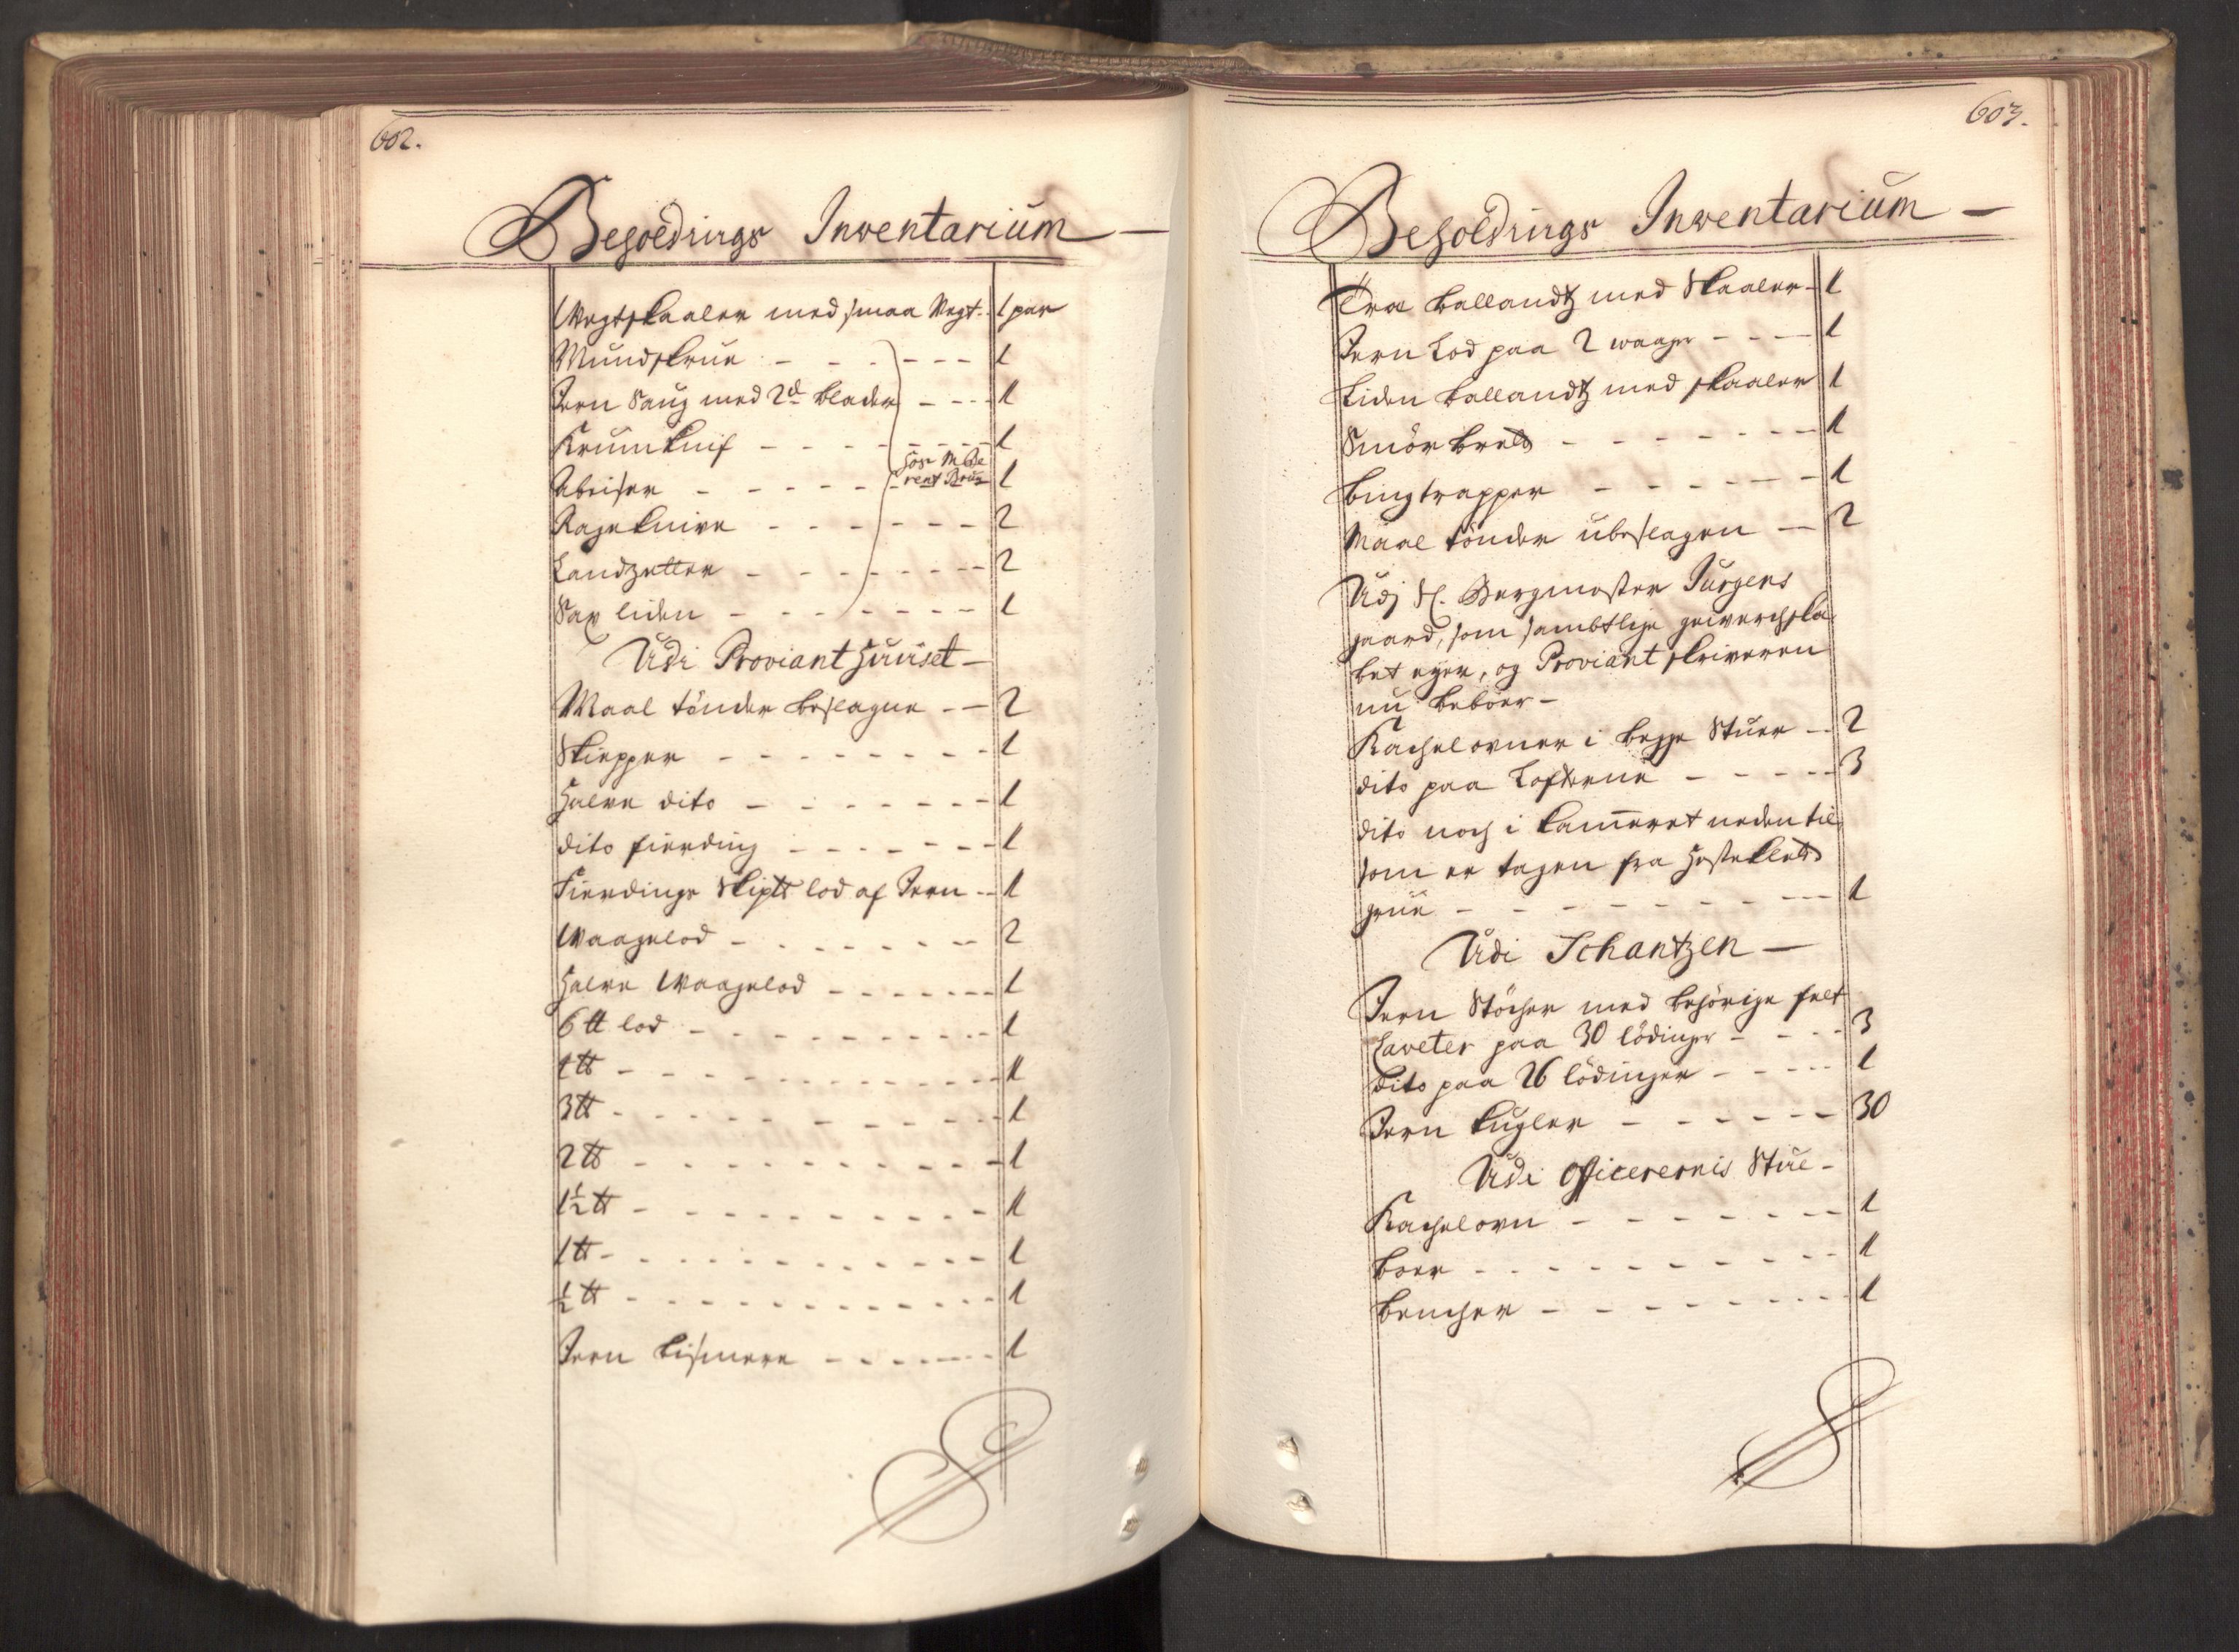 602.
Beholdnings Inventarium —
Vegtskaaler med smaa Vegt - 1 par
Mundskrue - - - - - - 1
Jern Saug med 2de blader - - - 1
Krumknif - - - - - - - 1
hos Mste
rent Bruz
- - - - - - 1
Rageknive - - - - - - 2
Landzetter - - - - - - 2
Sax liden - - - - - - 1
Udi Proviant Huuset —
Maal tönder beslagne - - 2
Skiepper - - - - - - - 1
Halve dito - - - - - - - 1
dito fierding - - - - - - 1
Fierdings Skiptt lod af Jern - - 1
Waagelod - - - - - - - 2
Halve Waagelod - - - - - - 1
6 tt lod - - - - - - - - 1
4 tt - - - - - - - - - - 1
3 tt - - - - - - - - - - 1
2 tt - - - - - - - - - - 1
1½ tt - - - - - - - - - 1
1 tt - - - - - - - - - - 1
½ tt - - - - - - - - - - 1
Jern bismere - - - - - - 1
603.
Beholdnings Inventarium —
Træ ballandtz med Skaaler - 1
Jern Lod paa 2 waager - - - 1
Liden ballandtz med skaaler 1
Smör - - - - - - - 1
bingtrapper - - - - - - 1
Maal tönder ubeslagen — 2
Udj Sl. Bergmester Jürgens
gaard, som sambtlige gewerchska-
bet eyer, og Proviantskriveren
nu beboer -
Kachelovner i begge Stuer - - 2
dito paa Lofterne - - - - - 3
dito noch i kammeret neden til
som er tagen fra
grue - - - - - - - - - 1
Udi Schantzen —
Jern Stöcher med behörige felt
Laveter paa 30 lödinger - - - 3
dito paa 26 lödinger - - - - 1
Jern kugler - - - - - - 30
Udi Officerernis Stue -
Kachelovn - - - - - - - 1
boer - - - - - - - - - - 1
bencher - - - - - - - - 1